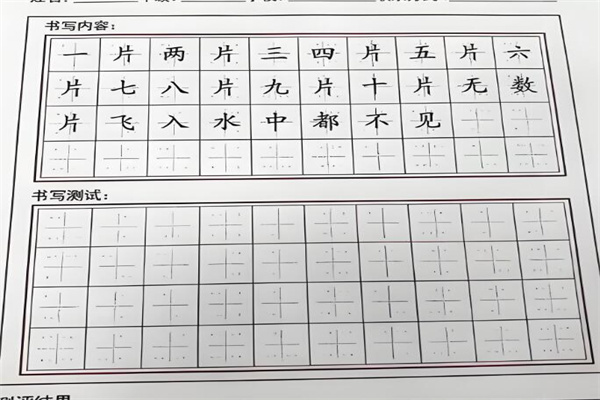 书写内容：
一片两片三四片五片六
片七八片九片十片无数
片飞入水中都不见
书写测试：